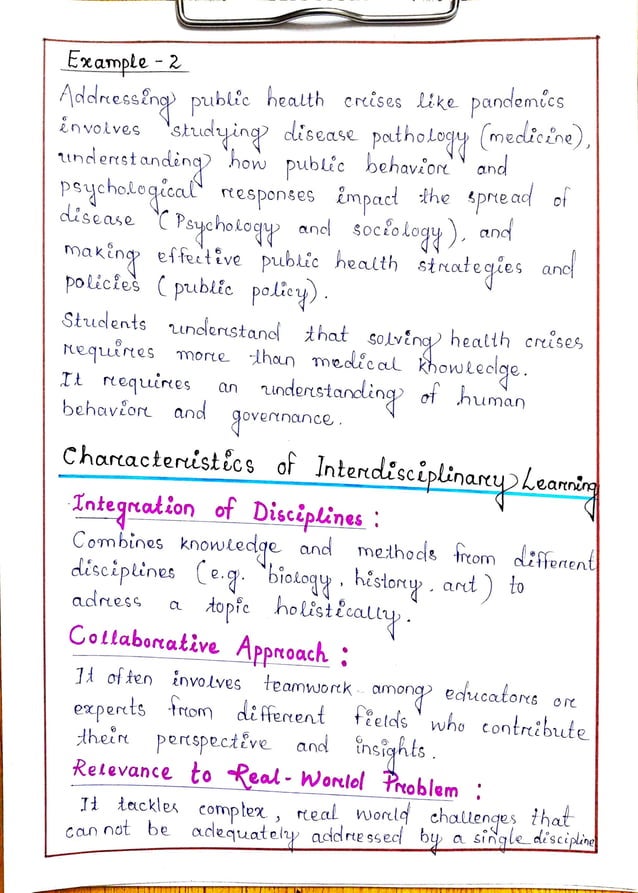 Example - 2
Addressing public health crises like pandemics
involves studying disease pathology (medicine),
understanding how public behavior and
psychological responses impact the spread of
disease (Psychology and sociology), and
making effective public health strategies and
policies (public policy).
Students understand that solving health crises
requires more than medical knowledge.
It requires an understanding of human
behavior and governance.
Characteristics of Interdisciplinary Learning
Integration of Disciplines :
Combines knowledge and methods from different
disciplines (e.g. biology, history, art) to
adress a topic holistically.
Collaborative Approach :
It often involves teamwork among educators or
experts from different fields who contribute
their perspective and insights.
Relevance to Real-World Problem :
It tackles complex, real world challenges that
can not be adequately addressed by a single discipline